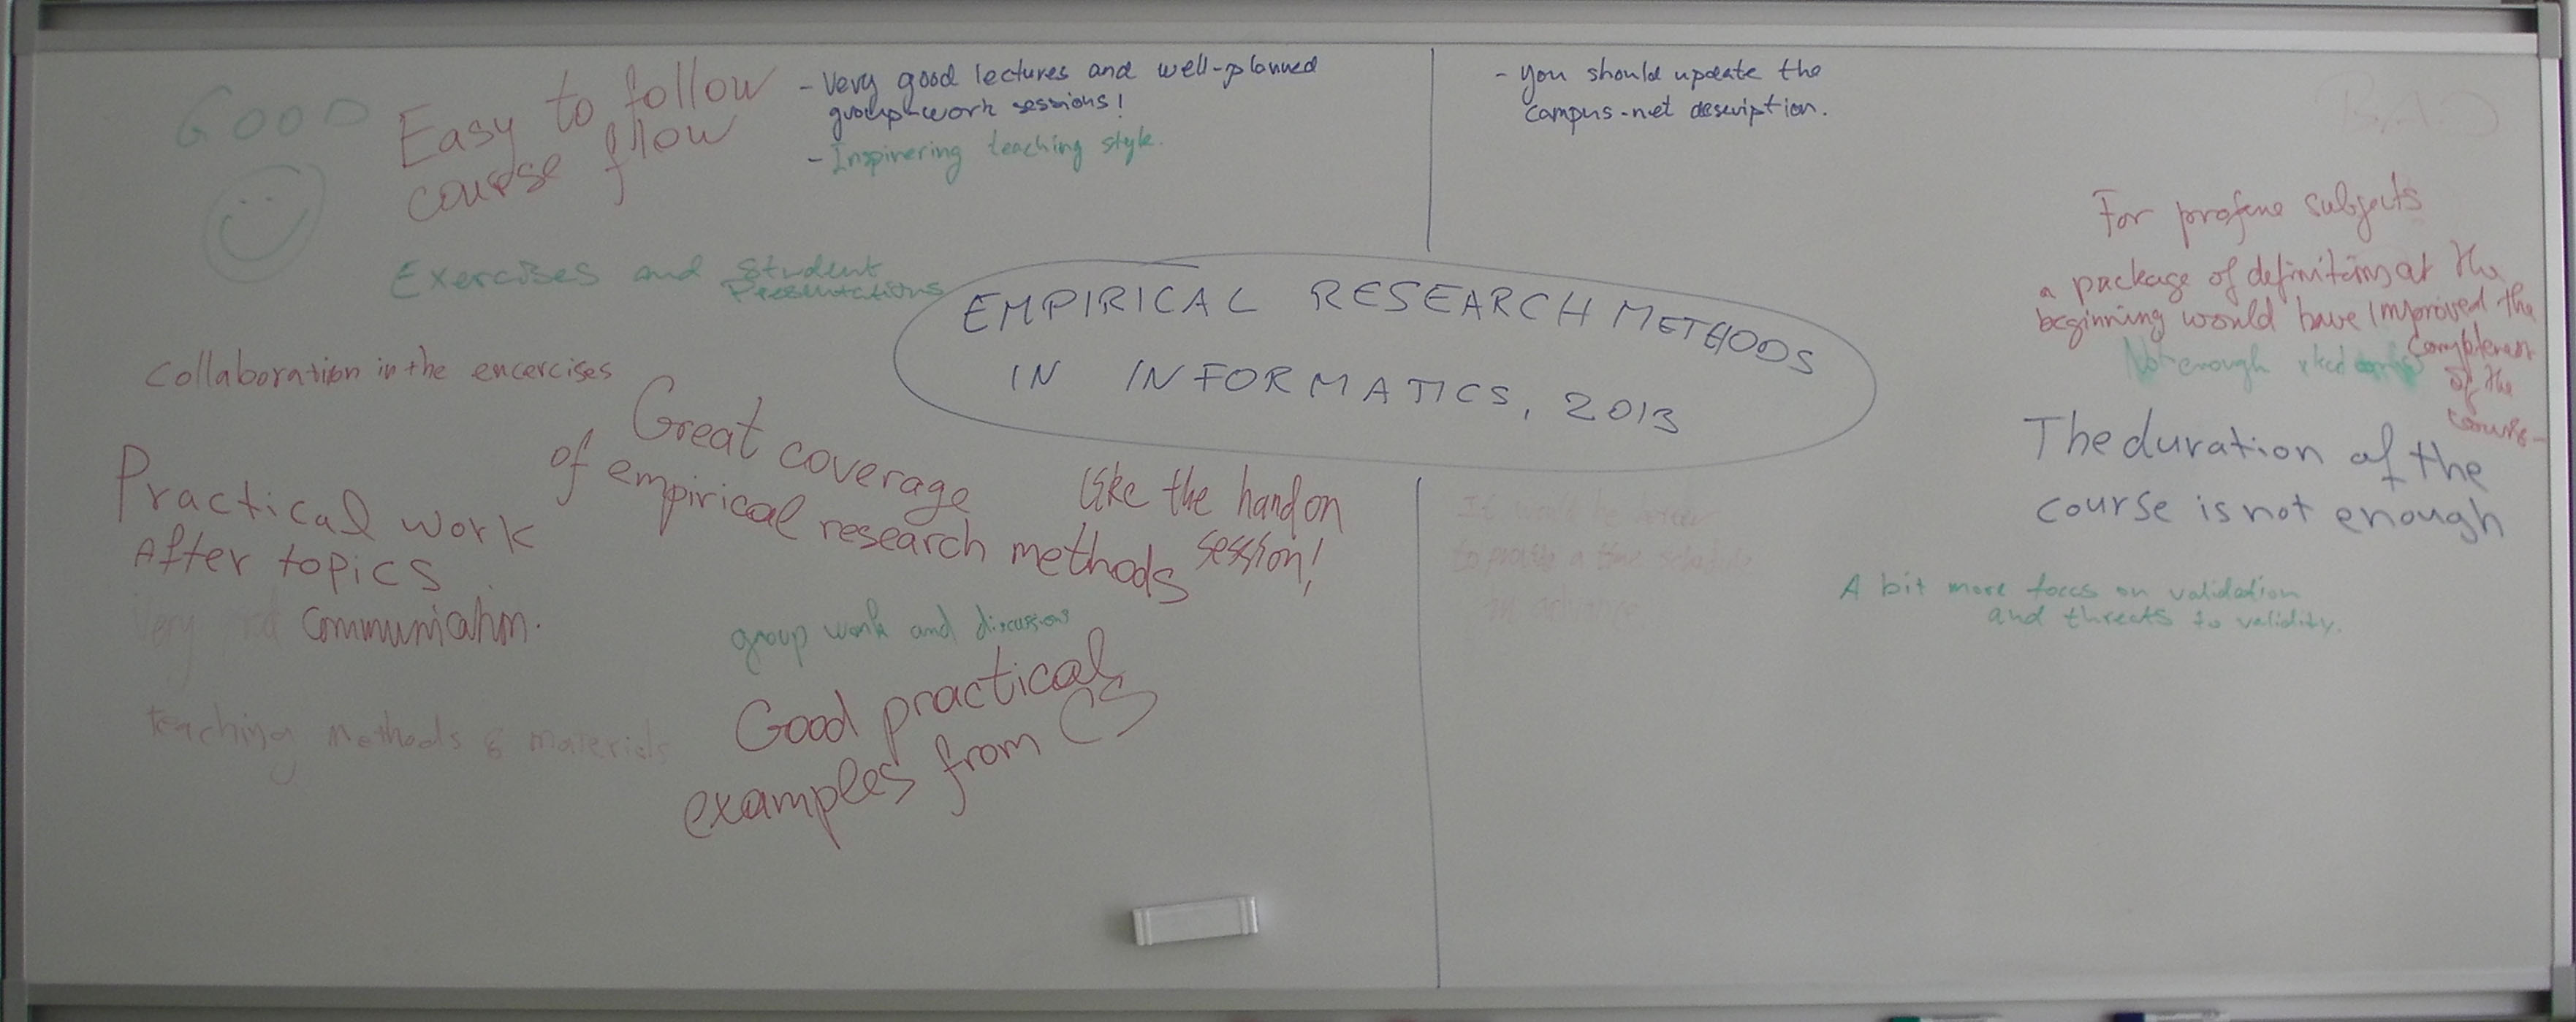 GOOD
Easy to follow
course flow
- Very good lectures and well-planned
group-work sessions!
- Inspirering teaching style.
Exercises and Student
Presentations
Collaboration in the encercises
Great coverage
of empirical research methods
Practical work
After topics
Very communication.
teaching methods & materials
like the hand on
session!
group work and discussions
Good practical
examples from CS
EMPIRICAL RESEARCH METHODS
IN INFORMATICS, 2013
- you should update the
campus-net description.
BAD
For profene subjects
a package of definitions at the
beginning would have improved the
of the
course
Not enough
The duration of the
course is not enough
A bit more focus on validation
and threats to validity.
It would be better
to a time schedule
in advance